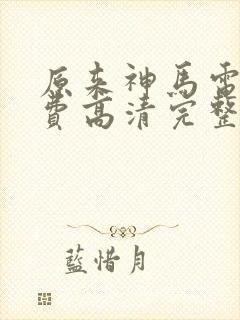 原来神馬電
費高清完整
藍惜月